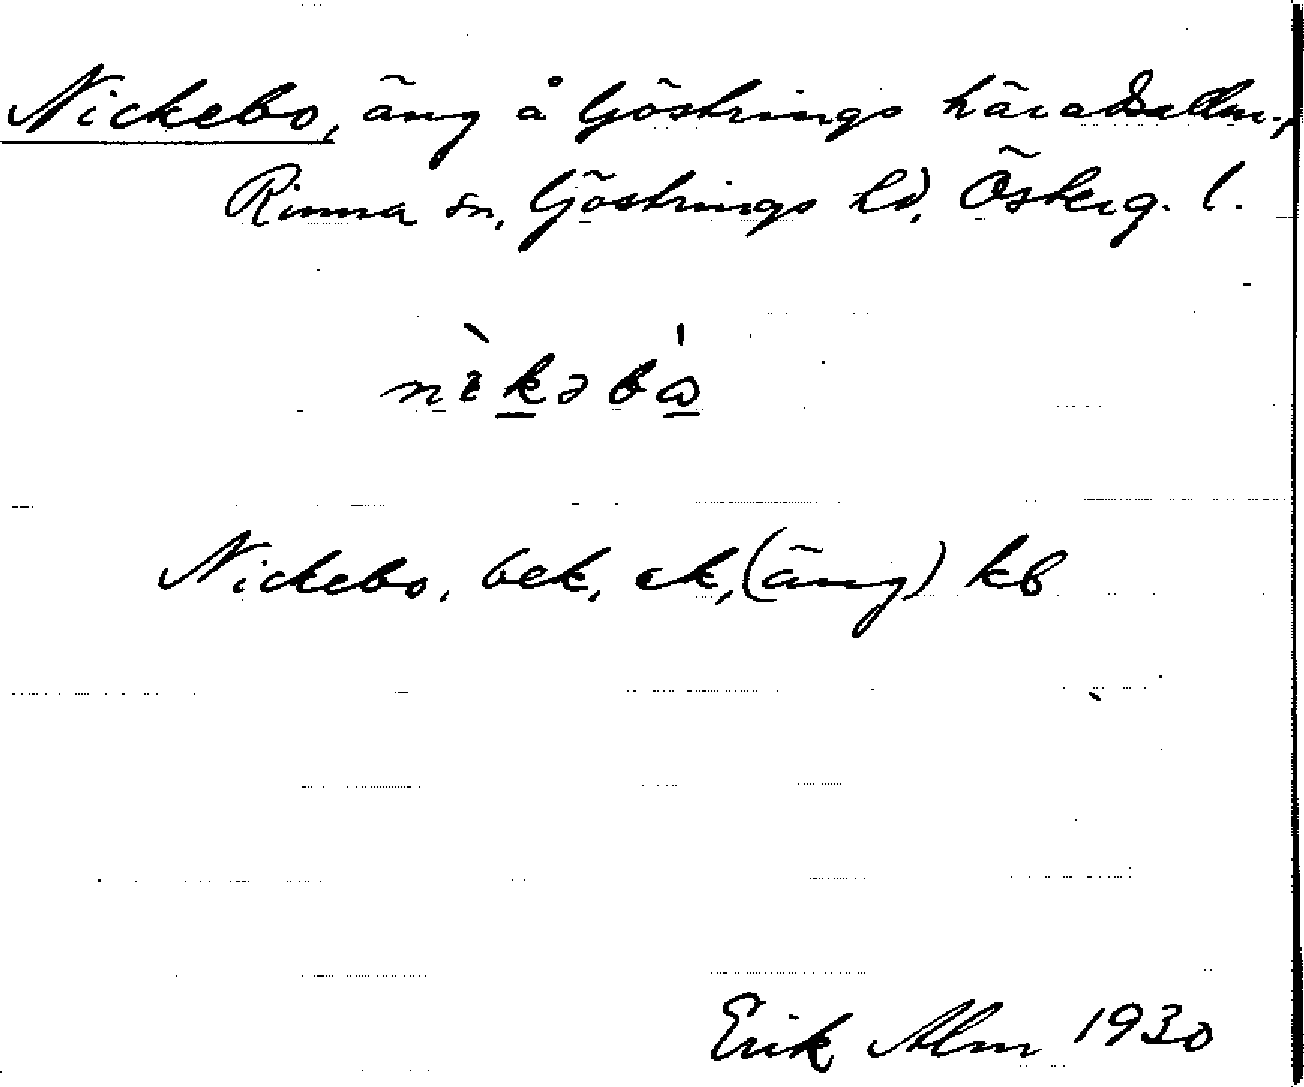 Nickebo, äng å Göstrings häradsallm.,
Rinna sn, Göstrings hd, Österg. l.
Nickebo, bek, ek, (äng) kb
Erik Alm 1930